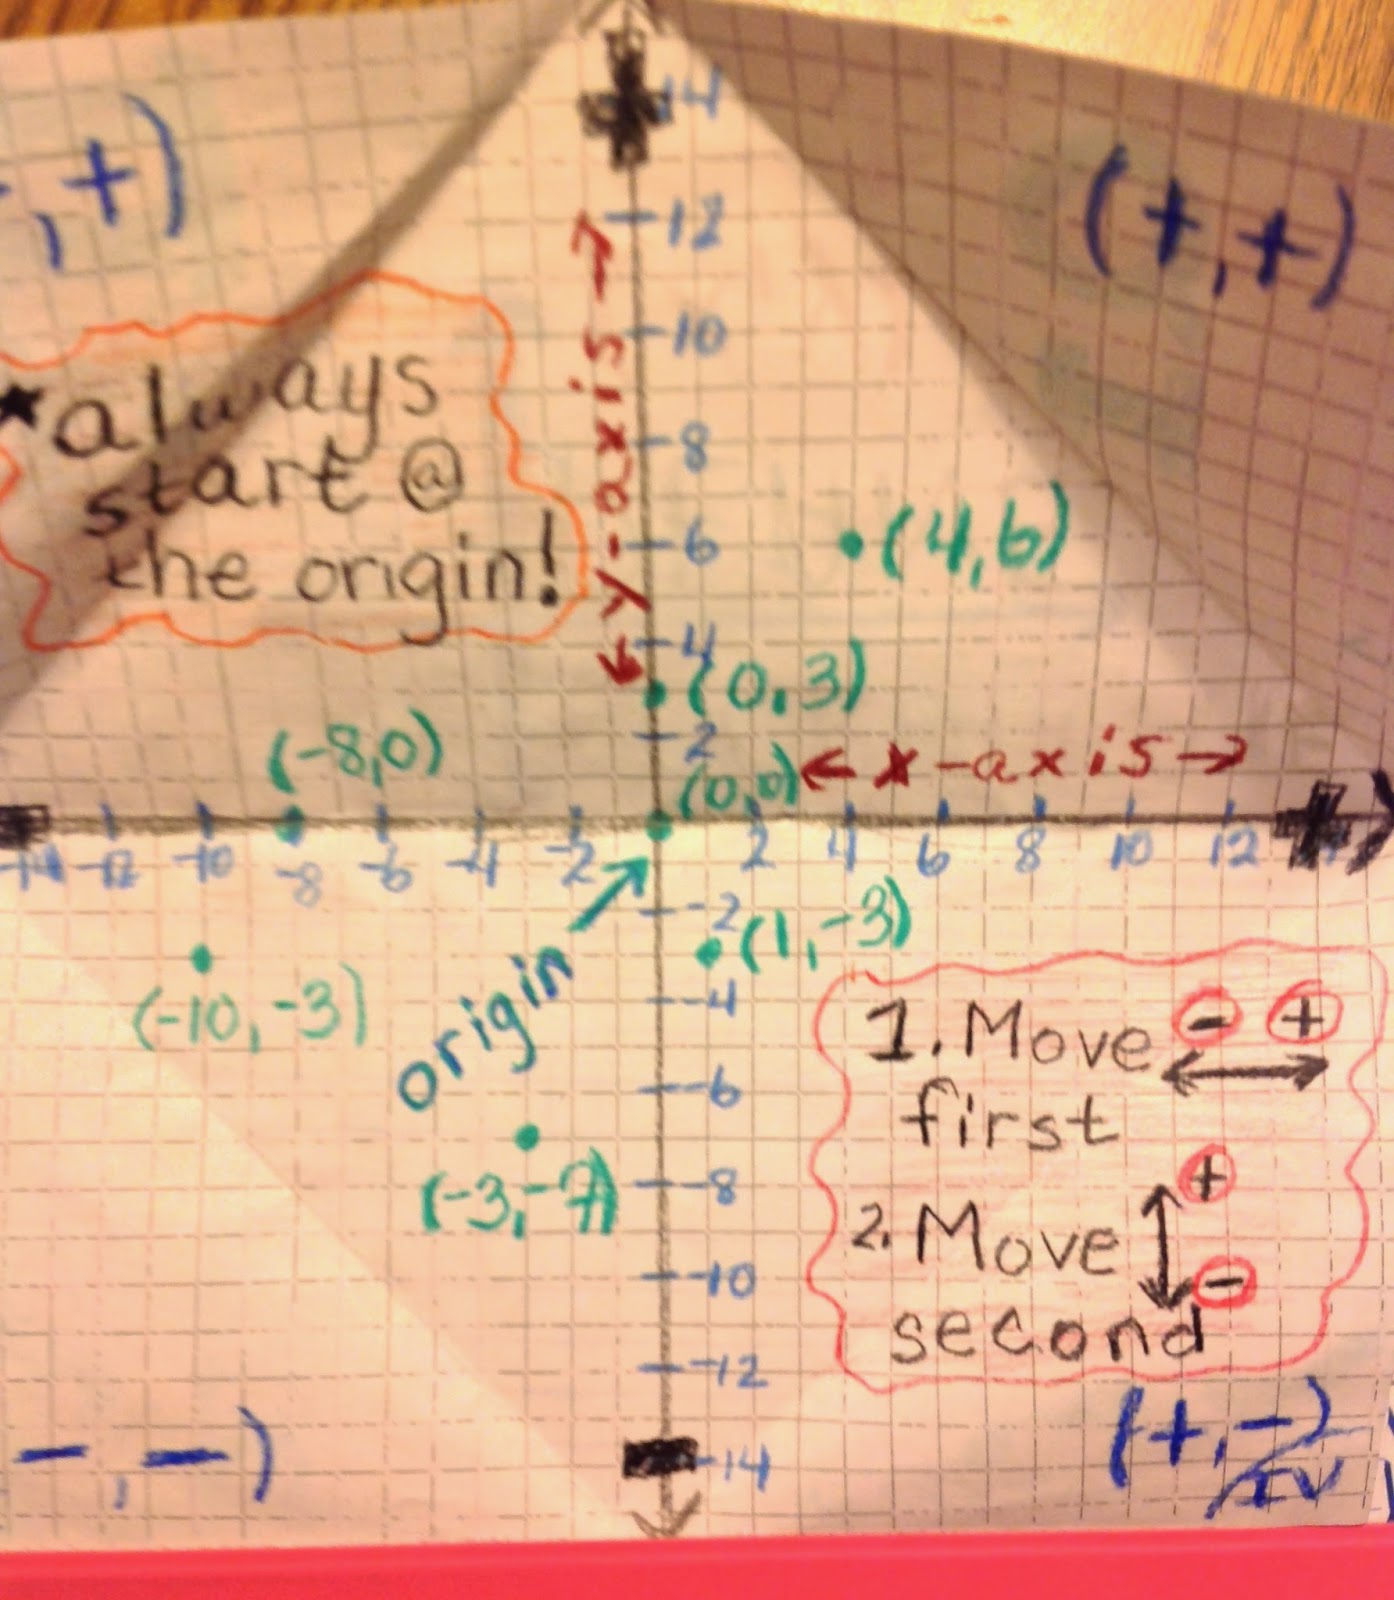 14
, +)
(+,+)
12
10
★always
start @
the origin!
y-axis
8
6
(4,6)
4
(0,3)
(-8,0)
2
(0,0)
x-axis
-14 -12 -10 -8 -6 -4 -2 2 4 6 8 10 12
-2
(1,-3)
(-10,-3)
origin
-4
1. Move - +
first
-6
(-3,-7)
-8
2. Move +
-
second
-10
-12
-14
-,-)
(+,-)
IV